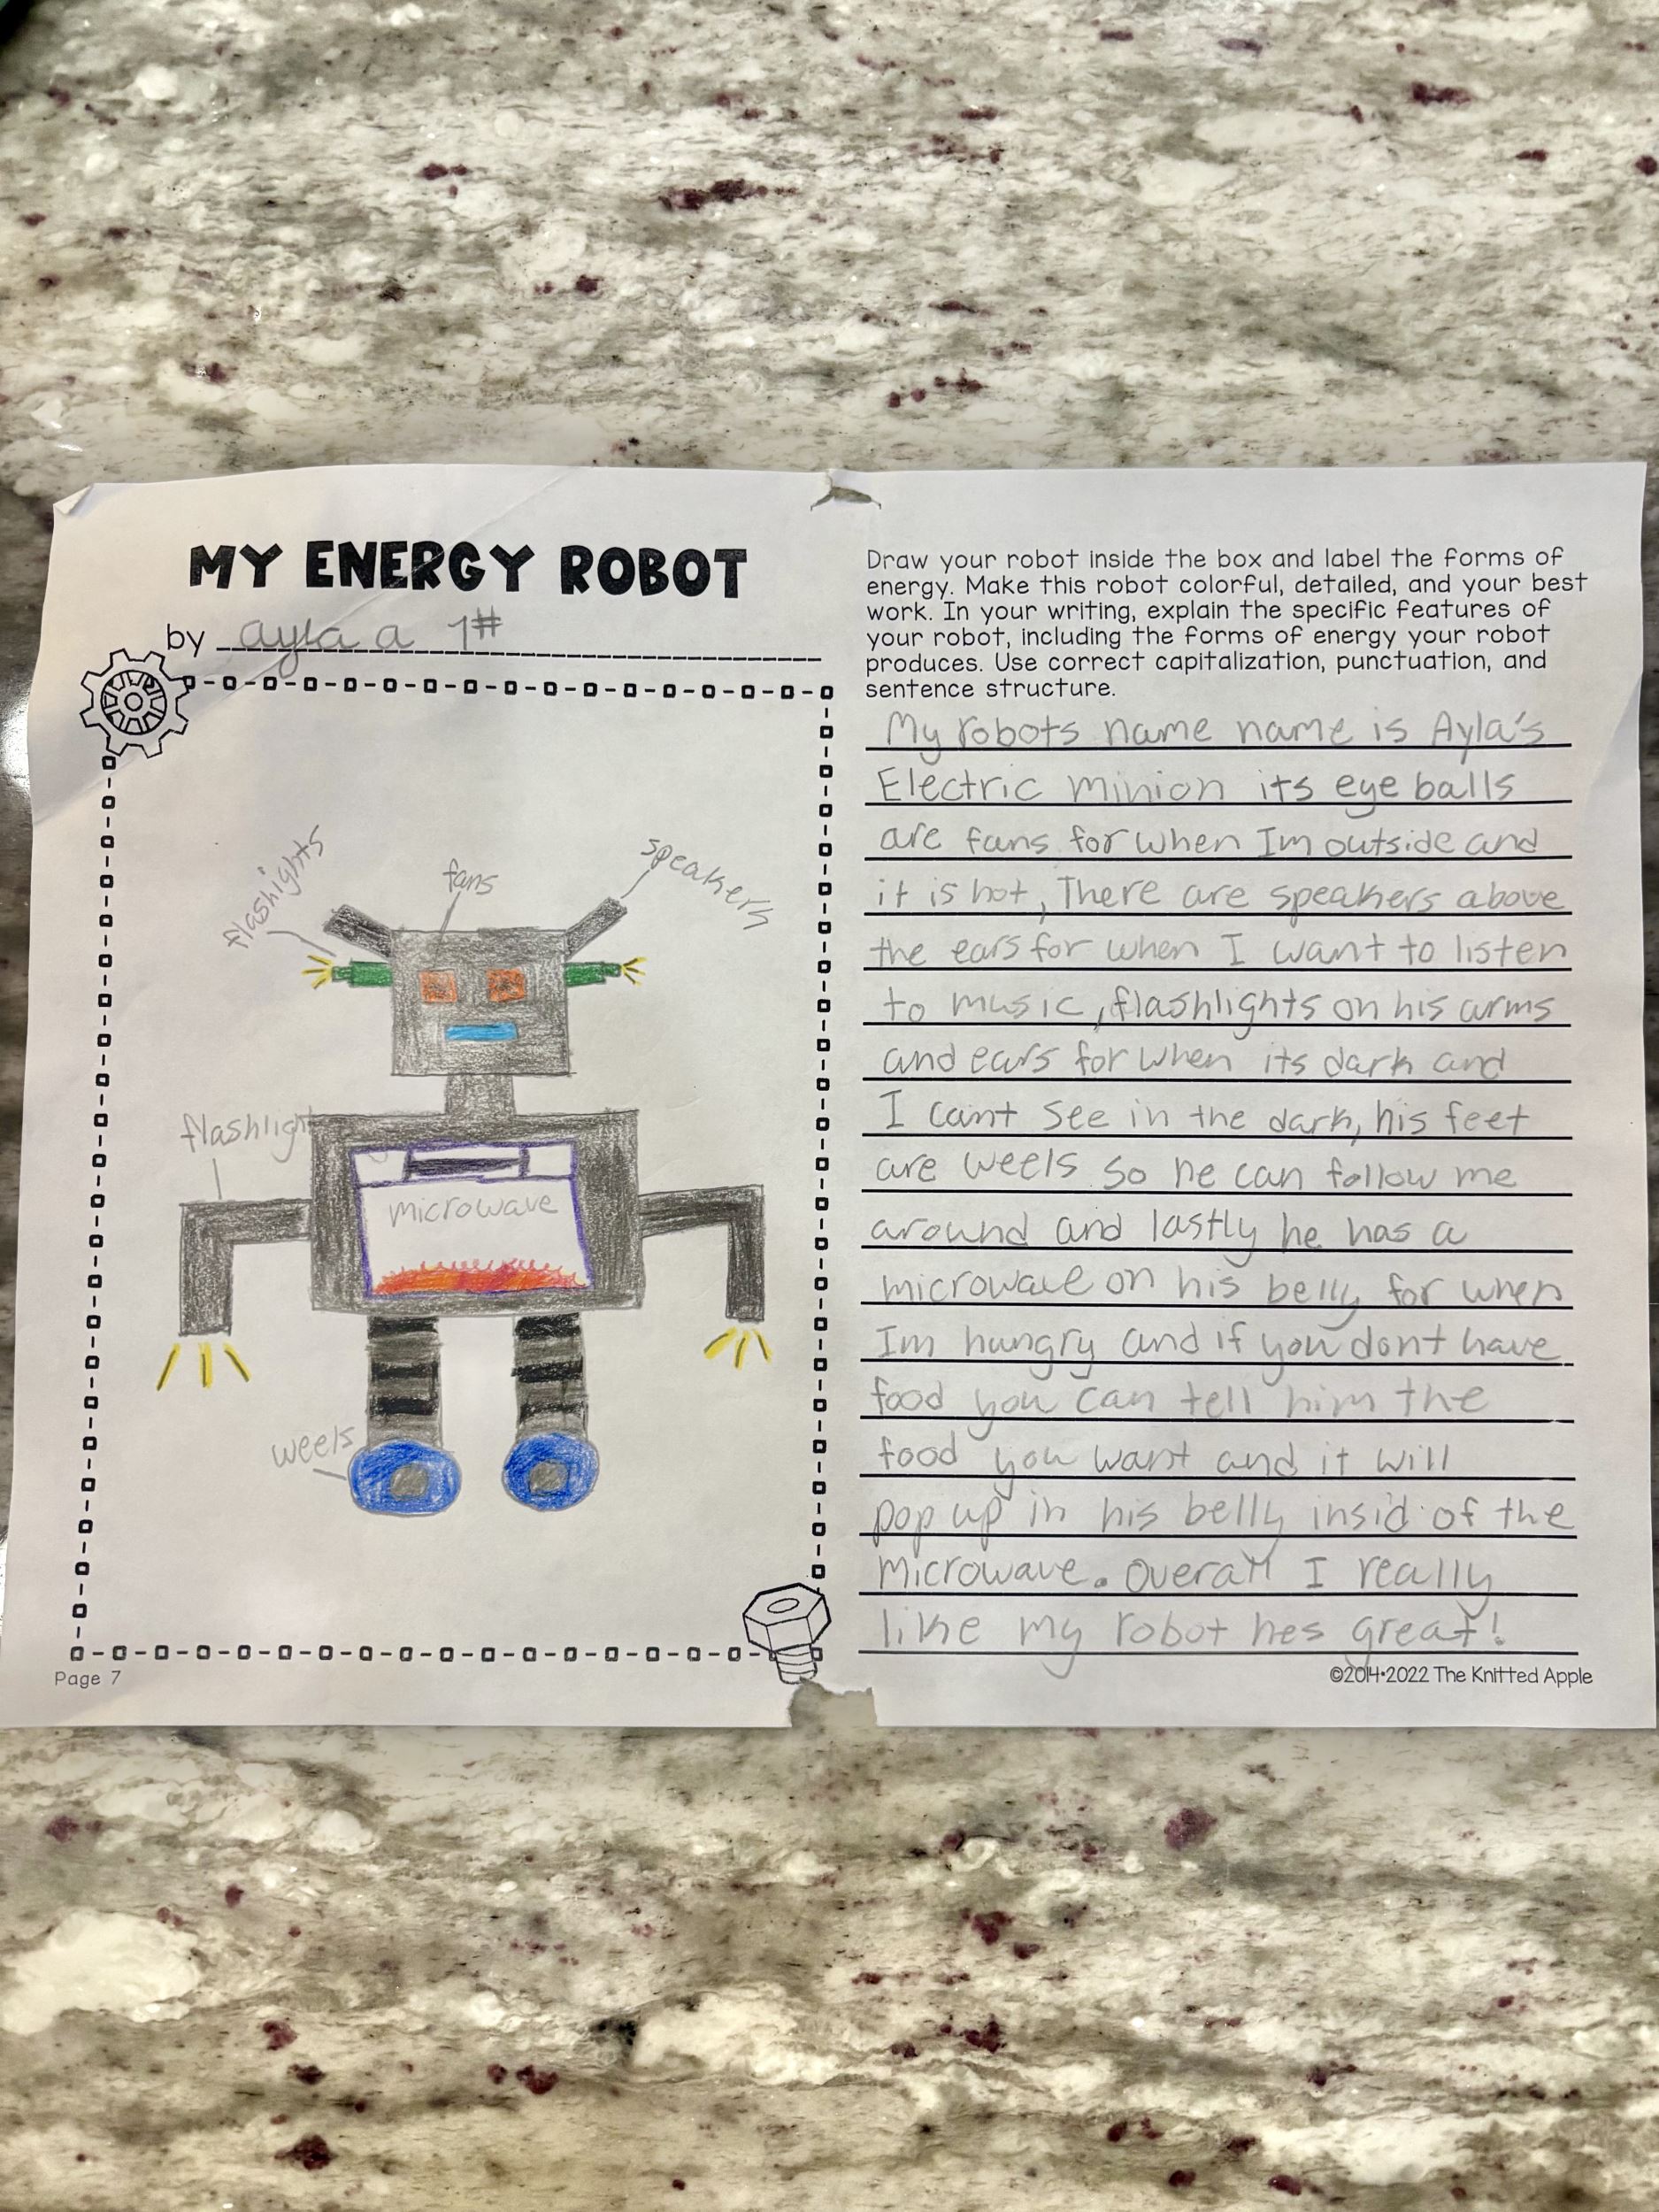 MY ENERGY ROBOT
by ayla a 1#
flashights
fans
speakers
flashlight
microwave
weels
Page 7
Draw your robot inside the box and label the forms of
energy. Make this robot colorful, detailed, and your best
work. In your writing, explain the specific features of
your robot, including the forms of energy your robot
produces. Use correct capitalization, punctuation, and
sentence structure.
My robots name name is Ayla's
Electric Minion its eye balls
are fans for when Im outside and
it is hot, There are speakers above
the ears for when I want to listen
to music, flashlights on his arms
and ears for when its dark and
I cant see in the dark, his feet
are weels so he can follow me
around and lastly he has a
microwave on his belly for when
Im hungry and if you dont have
food you can tell him the
food you want and it will
pop up in his belly insid of the
microwave. Overall I really
like my robot hes great!
©2014-2022 The Knitted Apple